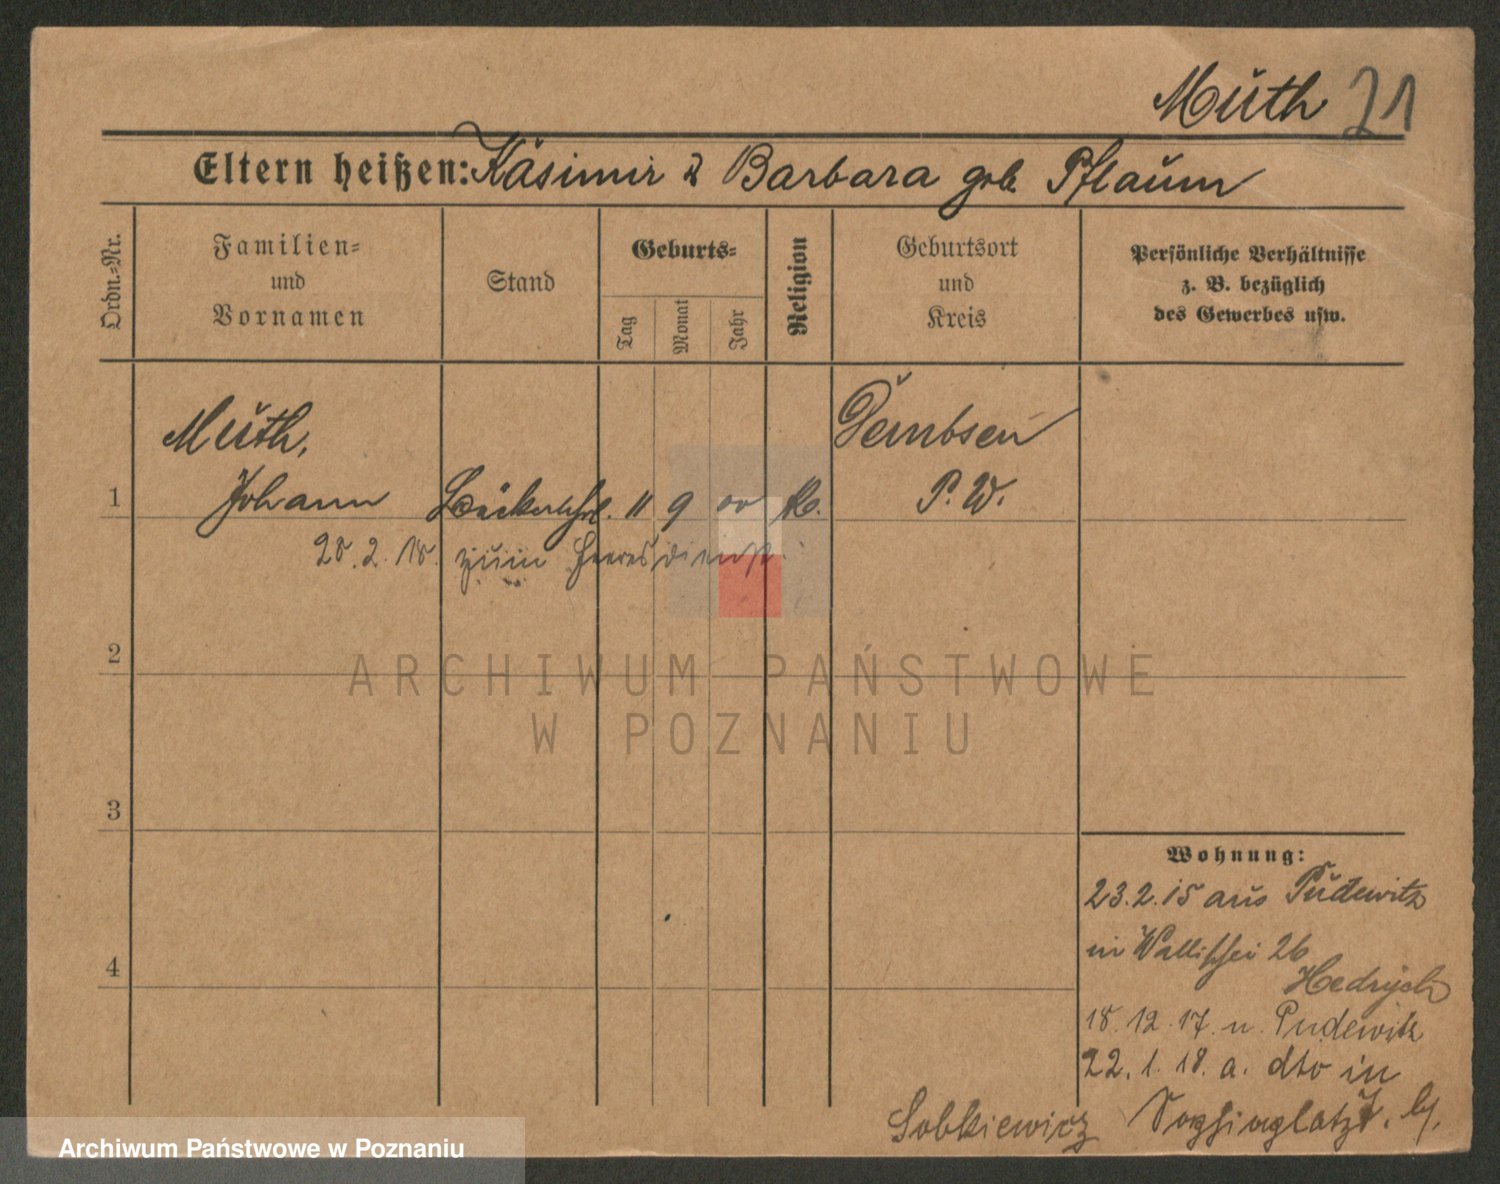 Muth 21
Eltern heißen: Kasimir & Barbara geb Pflaum
Ordn.-Nr.
Familien-
und
Vornamen
Stand
Geburts-
Tag
Monat
Jahr
Religion
Geburtsort
und
Kreis
Persönliche Verhältnisse
z. B. bezüglich
des Gewerbes usw.
Muth,
1 Johann Bäckerlehrl. 11 9 00 K.
P. W.
28.2.18. zum Heeresdienst.
2
3
4
Wohnung:
23.2.15 aus Pudewitz
in Wallischei 26
Hedrych
18.12.17. n. Pudewitz
22.1.18. a. dto in
Sobkiewicz
ARCHIWUM PAŃSTWOWE
W POZNANIU
Archiwum Państwowe w Poznaniu